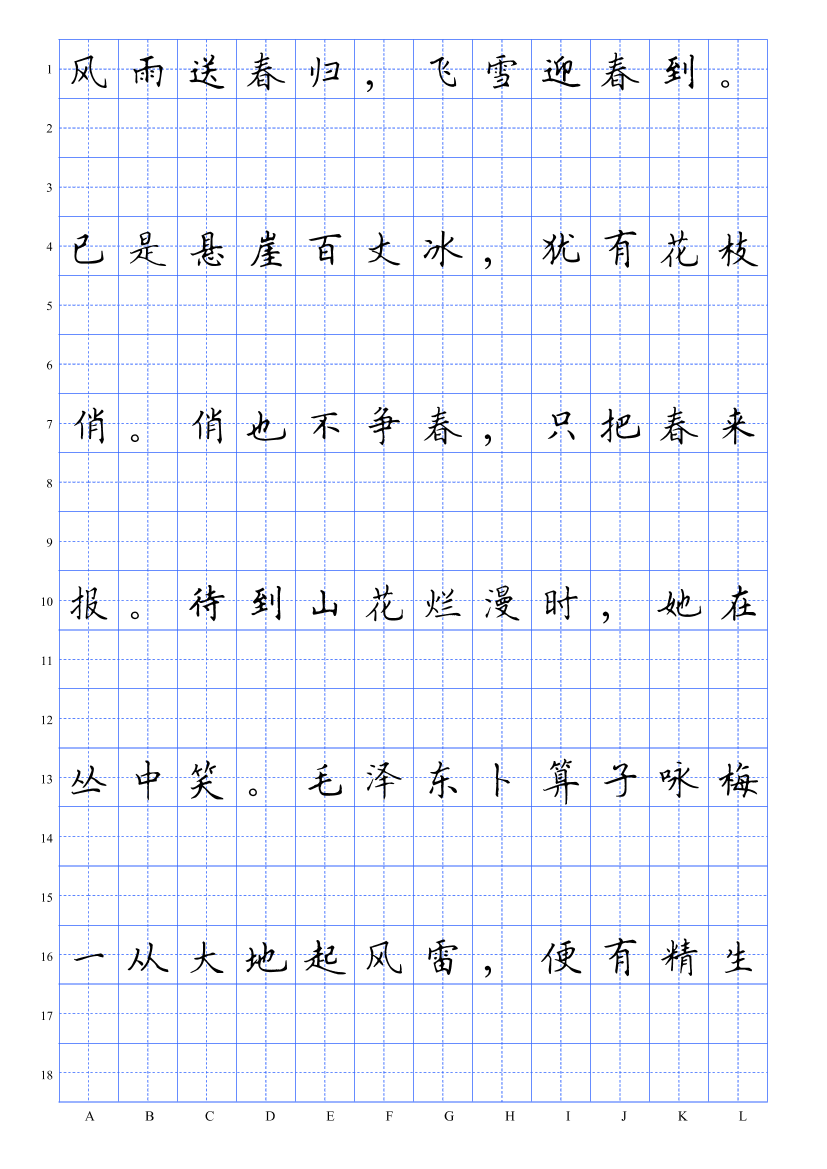 1 风雨送春归，飞雪迎春到。
2
3
4 已是悬崖百丈冰，犹有花枝
5
6
7 俏。俏也不争春，只把春来
8
9
10 报。待到山花烂漫时，她在
11
12
13 丛中笑。毛泽东卜算子咏梅
14
15
16 一从大地起风雷，便有精生
17
18
A B C D E F G H I J K L